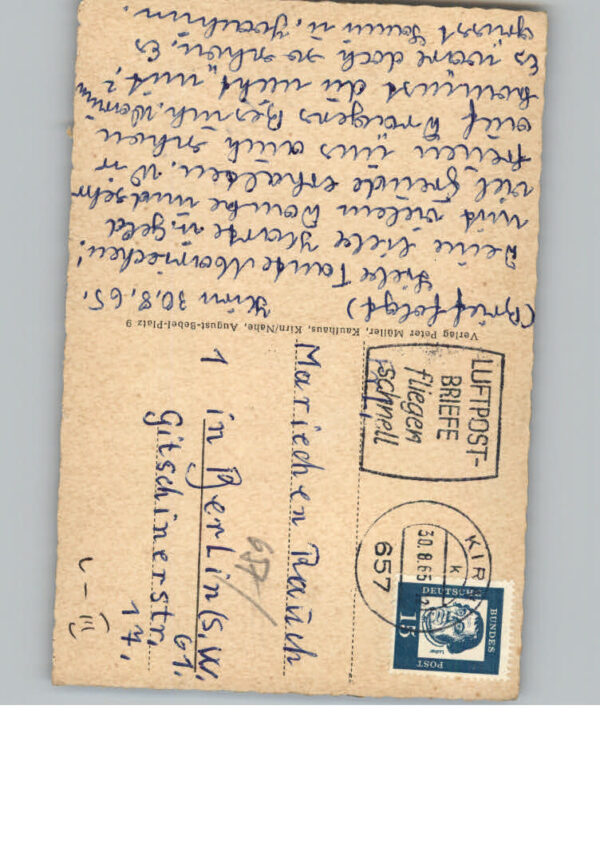 (Brief folgt) Kirn 30.8.65.
Liebe Tante Mariechen!
Deine liebe Karte u. Geld
mit vielem Danke und sehr
viel Freude erhalten. Wir
freuen uns auch schon
auf Besuch. Warum
kommst du nicht mit?
Es wäre doch so schön. Es
grüsst u. Joachim.
Verlag Peter Müller, Kaufhaus, Kirn/Nahe, August-Bebel-Platz 9
LUFTPOST-
BRIEFE
fliegen
schnell
KIR
30.8.65
657
DEUTSCHE
BUNDES
POST
15
Luther
Mariechen Rauch
1 in Berlin (S.W. 61.
Gitschinerstr. 17.